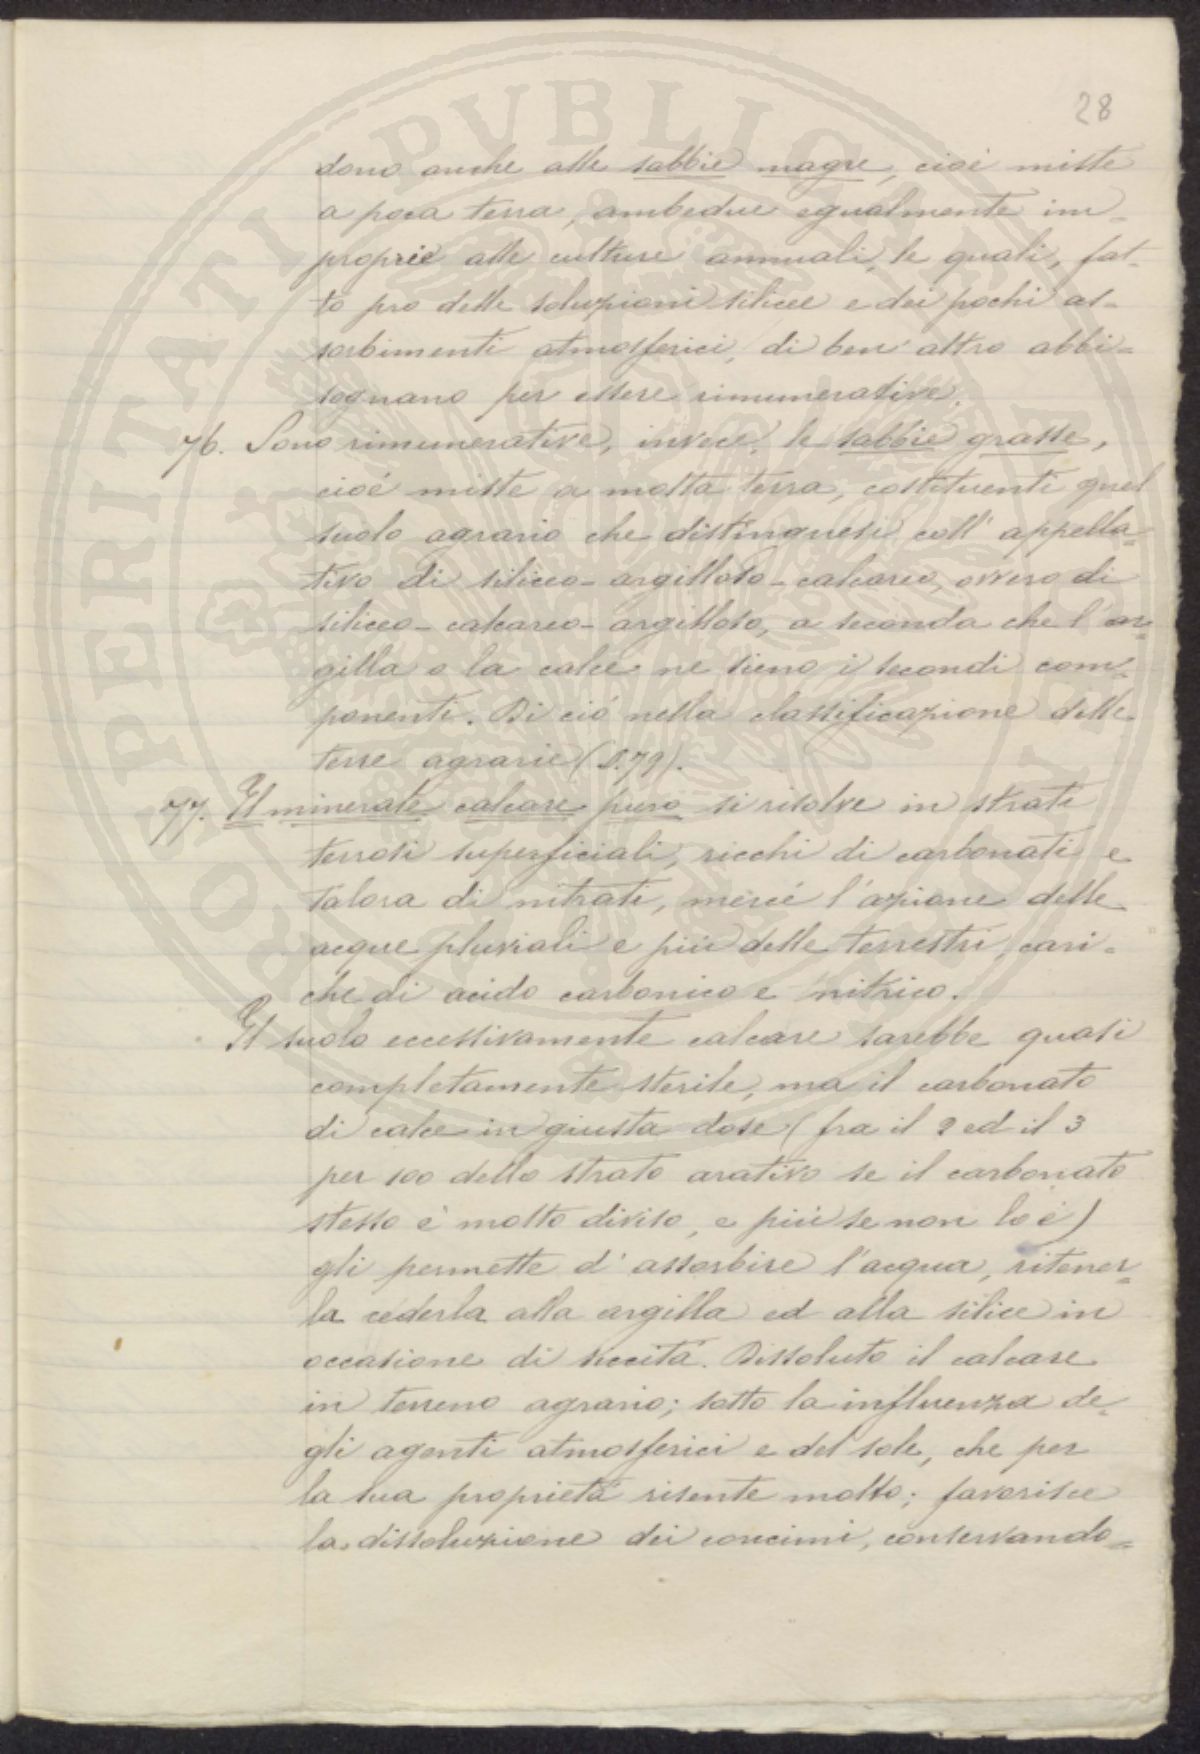 28
dono anche alle sabbie magre, cioè miste
a poca terra, ambedue egualmente im=
proprie alle culture annuali, le quali, fat-
to pro delle soluzioni silicee e dei pochi as-
sorbimenti atmosferici, di ben altro abbi=
sognano per essere rimunerative.
76. Sono rimunerative, invece, le sabbie grasse,
cioé miste a molta terra, costituenti quel
suolo agrario che distinguesi coll' appella=
tivo di siliceo-argilloso-calcareo, ovvero di
siliceo-calcareo-argilloso, a seconda che l'ar=
gilla o la calce ne sieno i secondi com=
ponenti. Di ció nella classificazione delle
terre agrarie (§.79).
77. Il minerale calcare puro si risolve in strati
terrosi superficiali, ricchi di carbonati e
talora di nitrati, mercé l'azione delle
acque pluviali e più delle terrestri, cari=
che di acido carbonico e nitrico.
Il suolo eccessivamente calcare sarebbe quasi
completamente sterile, ma il carbonato
di calce in giusta dose (fra il 2 ed il 3
per 100 dello strato arativo se il carbonato
stesso è molto diviso, e più se non lo è)
gli permette d'assorbire l'acqua, ritener=
la cederla alla argilla ed alla silice in
occasione di siccitá. Dissoluto il calcare
in terreno agrario; sotto la influenza de=
gli agenti atmosferici e del sole, che per
la sua proprietá risente molto; favorisce
la dissoluzione dei concimi, conservando=
PROSPERITATI PUBLICAE